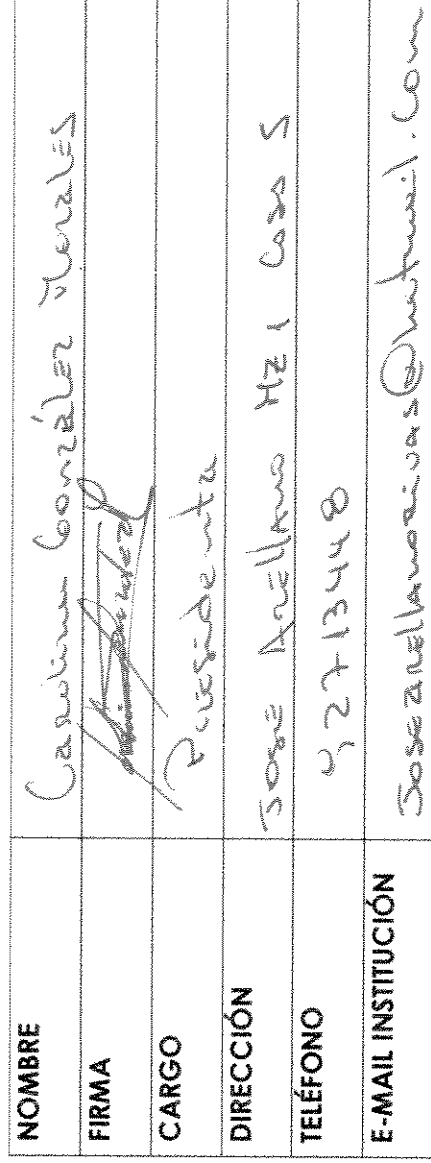 NOMBRE Carolina González Morales
FIRMA González
CARGO Presidenta
DIRECCIÓN José Arellano Mz 1 Casa 5
TELÉFONO
E-MAIL INSTITUCIÓN Josearellanorivas@hotmail.com